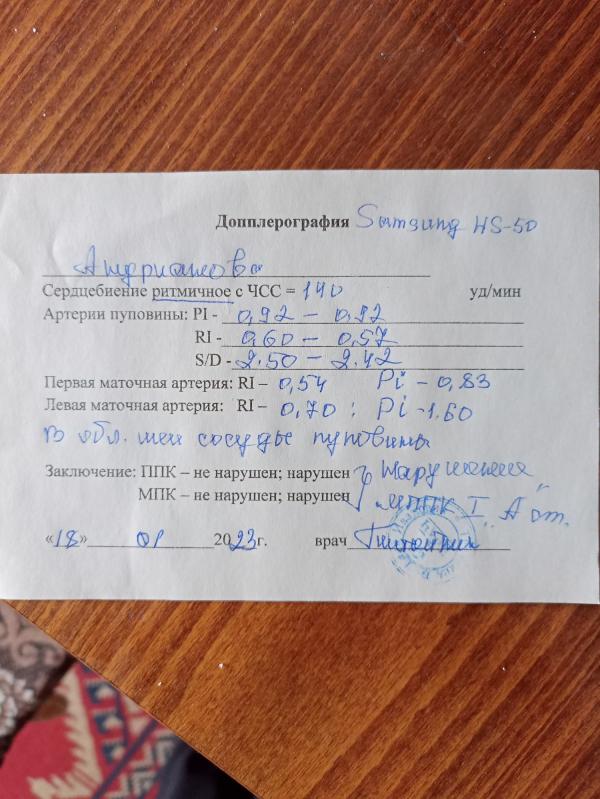 Допплерография Samsung HS-50
Андрианова
Сердцебиение ритмичное с ЧСС = 140 уд/мин
Артерии пуповины: PI - 0,92 – 0,92
RI - 0,60 – 0,57
S/D - 2.50 – 2.42
Первая маточная артерия: RI – 0,54 Pi – 0,83
Левая маточная артерия: RI – 0,70 ; Pi -1.60
В обл. шеи сосуды пуповины
Заключение: ППК – не нарушен; нарушен Нарушения
МПК – не нарушен; нарушен МППК I "А" ст.
«18» 01 2023г. врач